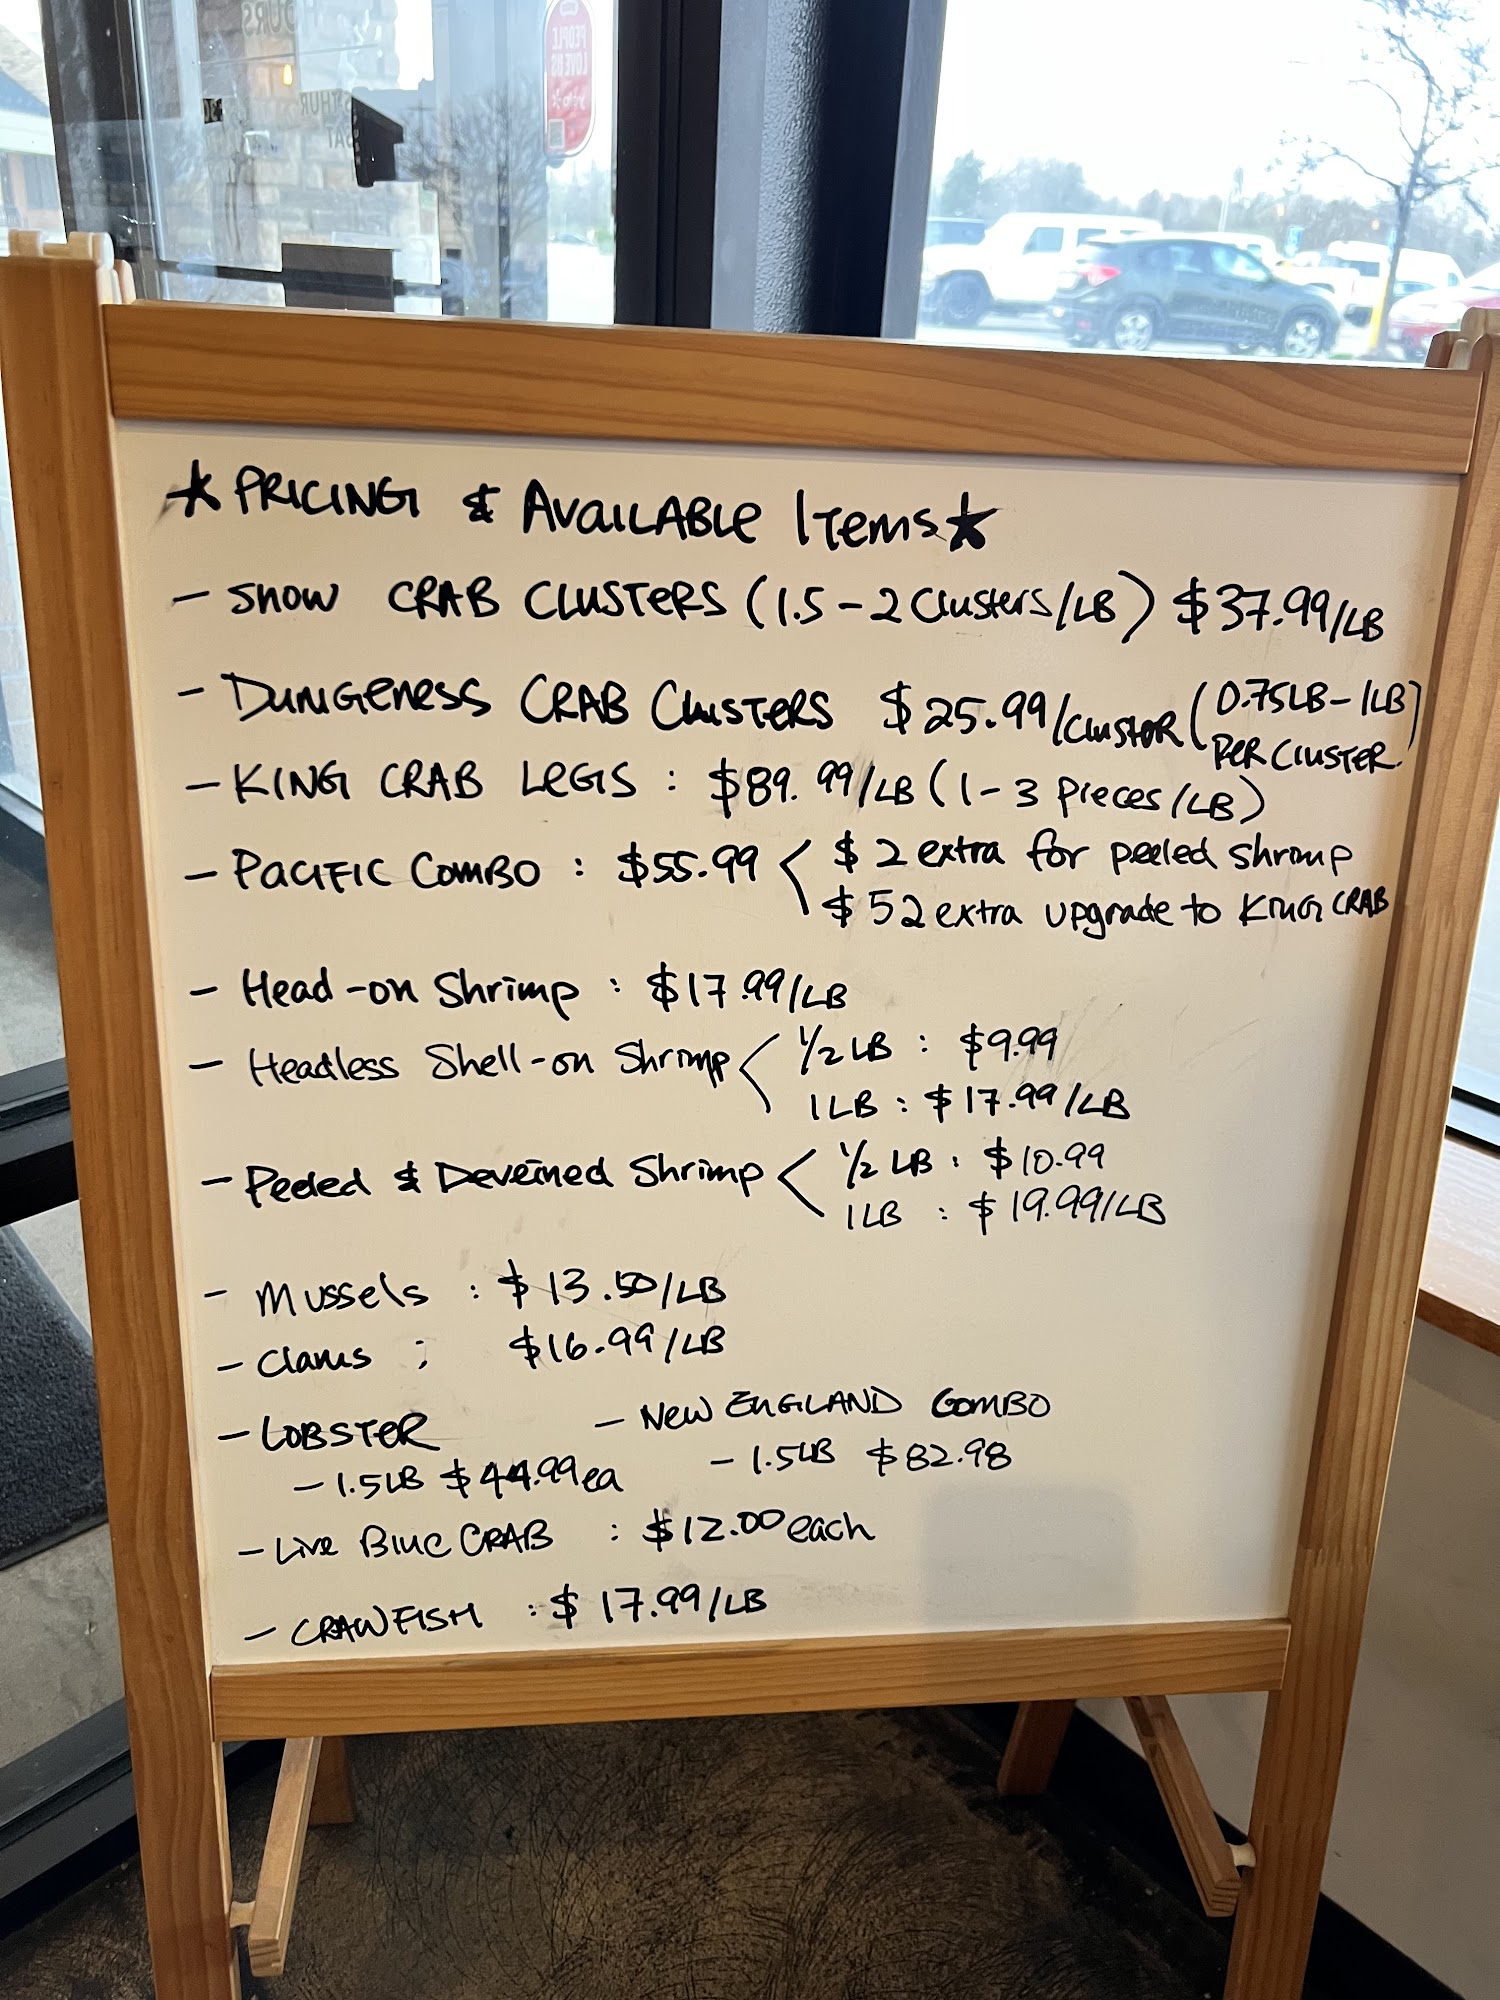 HOURS
PEOPLE
LOVE US
THUR
SAT
★ PRICING & AVAILABLE ITEMS ★
- SNOW CRAB CLUSTERS (1.5-2 Clusters/LB) $37.99/LB
- DUNGENESS CRAB CLUSTERS $25.99/CLUSTOR (0.75LB-1LB
PER CLUSTER)
- KING CRAB LEGS : $89.99/LB (1-3 Pieces/LB)
- PACIFIC COMBO : $55.99 < $2 extra for peeled shrimp
$52 extra upgrade to KING CRAB
- Head-on Shrimp : $17.99/LB
- Headless Shell-on Shrimp < 1/2 LB : $9.99
1LB : $17.99/LB
- Peeled & Deveined Shrimp < 1/2 LB : $10.99
1LB : $19.99/LB
- Mussels : $13.50/LB
- Clams ; $16.99/LB
- LOBSTER
- 1.5LB $44.99 ea
- NEW ENGLAND COMBO
- 1.5LB $82.98
- Live Blue CRAB : $12.00 each
- CRAWFISH : $17.99/LB